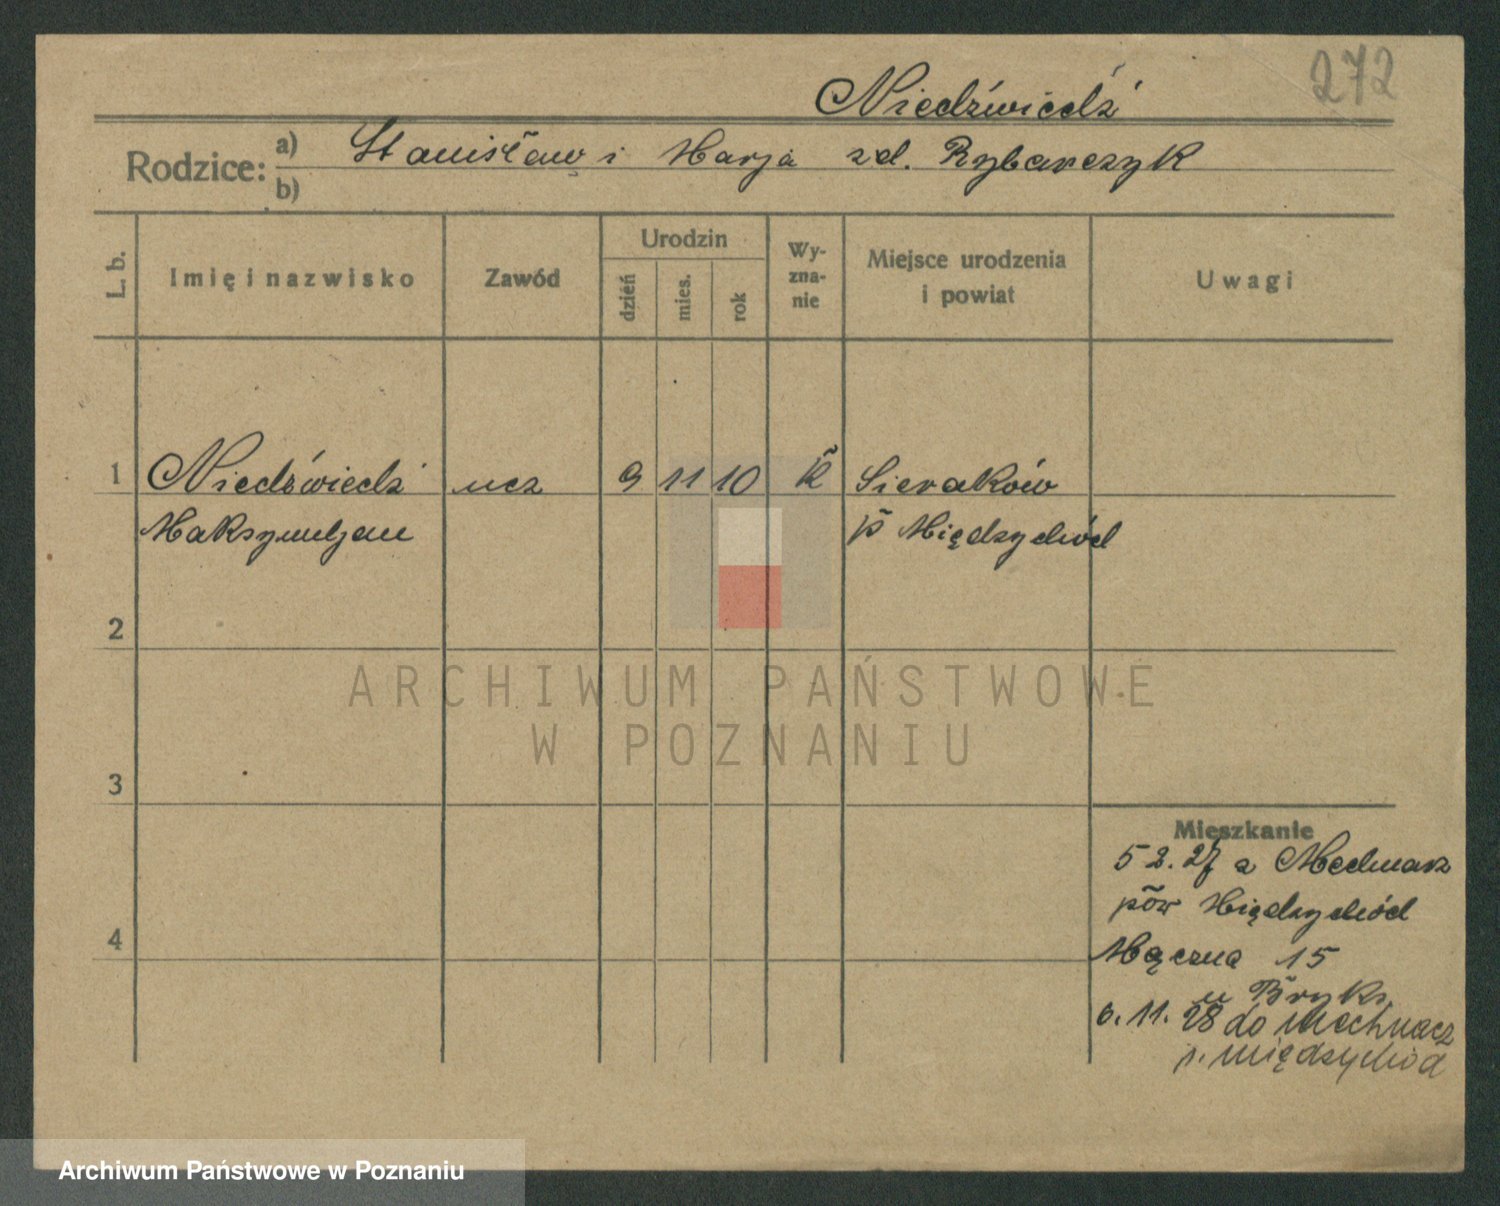 272
Niedźwiedź
Rodzice: a) b)
Stanisław i Marja zd. Rybarczyk
L. b.
Imię i nazwisko
Zawód
Urodzin
dzień
mies.
rok
Wy-
zna-
nie
Miejsce urodzenia
i powiat
Uwagi
1 Niedźwiedź ucz 9 11 10 k Sieraków
Maksymiljan p Międzychód
2
ARCHIWUM PAŃSTWOWE
W POZNANIU
3
Mieszkanie
5 2. 27 z
pow Międzychód
4
Mączna 15
u Bryks
6. 11. 28 do Mechnacz
p. Międzychód
Archiwum Państwowe w Poznaniu